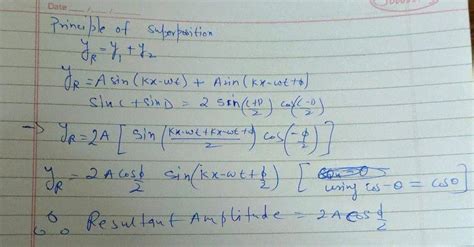 Date ___/___/___
Principle of superposition
y_R = y_1 + y_2
y_R = A sin(kx-wt) + A sin(kx-wt+ϕ)
sin C + sin D = 2 sin(C+D/2) cos(C-D/2)
→ y_R = 2A [ sin (kx-wt+kx-wt+ϕ/2) cos(-ϕ/2) ]
y_R = 2A cos ϕ/2 sin(kx-wt+ϕ/2) [ using cos-θ = cosθ ]
∴ Resultant Amplitude = 2A cos ϕ/2